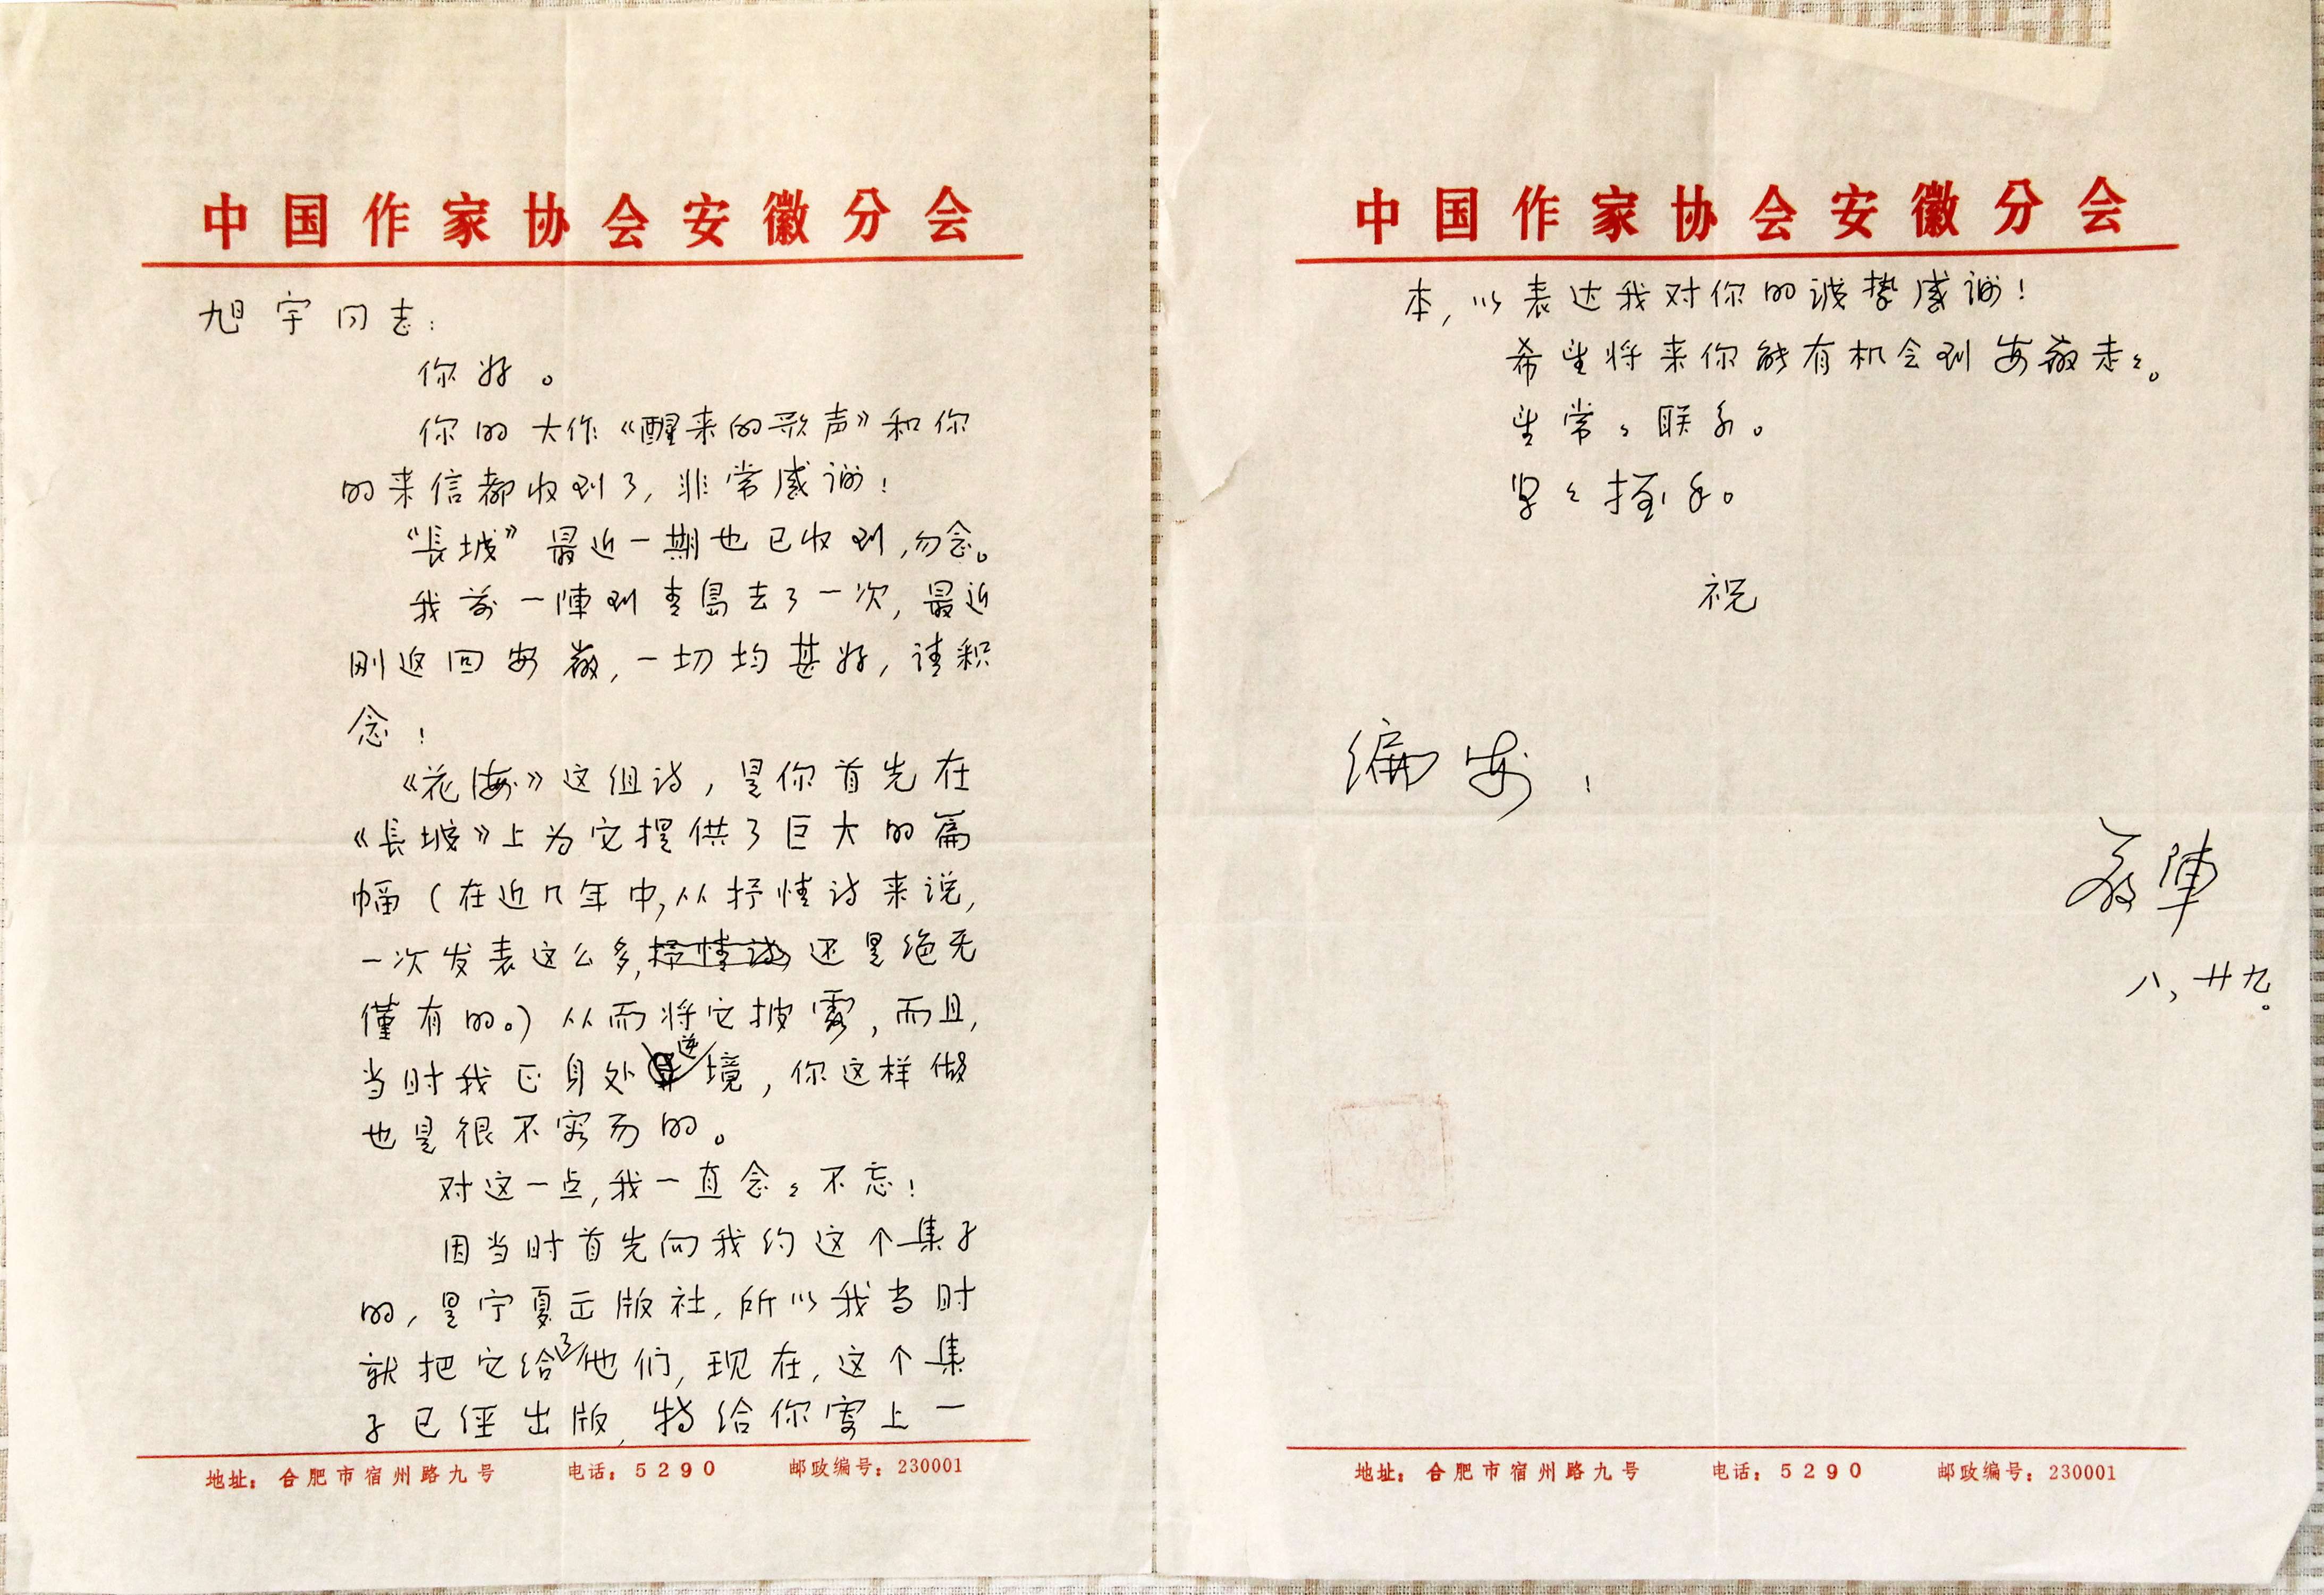 中国作家协会安徽分会
旭宇同志:
你好。
你的大作《醒来的歌声》和你
的来信都收到了,非常感谢!
“長城”最近一期也已收到,勿念。
我前一陣到青島去了一次,最近
刚返回安徽,一切均甚好,请释
念!
《花海》这组诗,是你首先在
《長城》上为它提供了巨大的篇
幅(在近几年中,从抒情诗来说,
一次发表这么多,抒情诗还是绝无
僅有的。)从而将它披露,而且,
当时我正身处逆境,你这样做
也是很不容易的。
对这一点,我一直念々不忘!
因当时首先向我约这个集子
的,是宁夏出版社,所以我当时
就把它给了他们,现在,这个集
子已经出版,特给你寄上一
地址:合肥市宿州路九号 电话:5290 邮政编号:230001
中国作家协会安徽分会
本,以表达我对你的诚挚感谢!
希望将来你能有机会到安徽走々。
望常々联系。
紧々握手。
祝
编安!
严陣
八、廿九。
地址:合肥市宿州路九号 电话:5290 邮政编号:230001